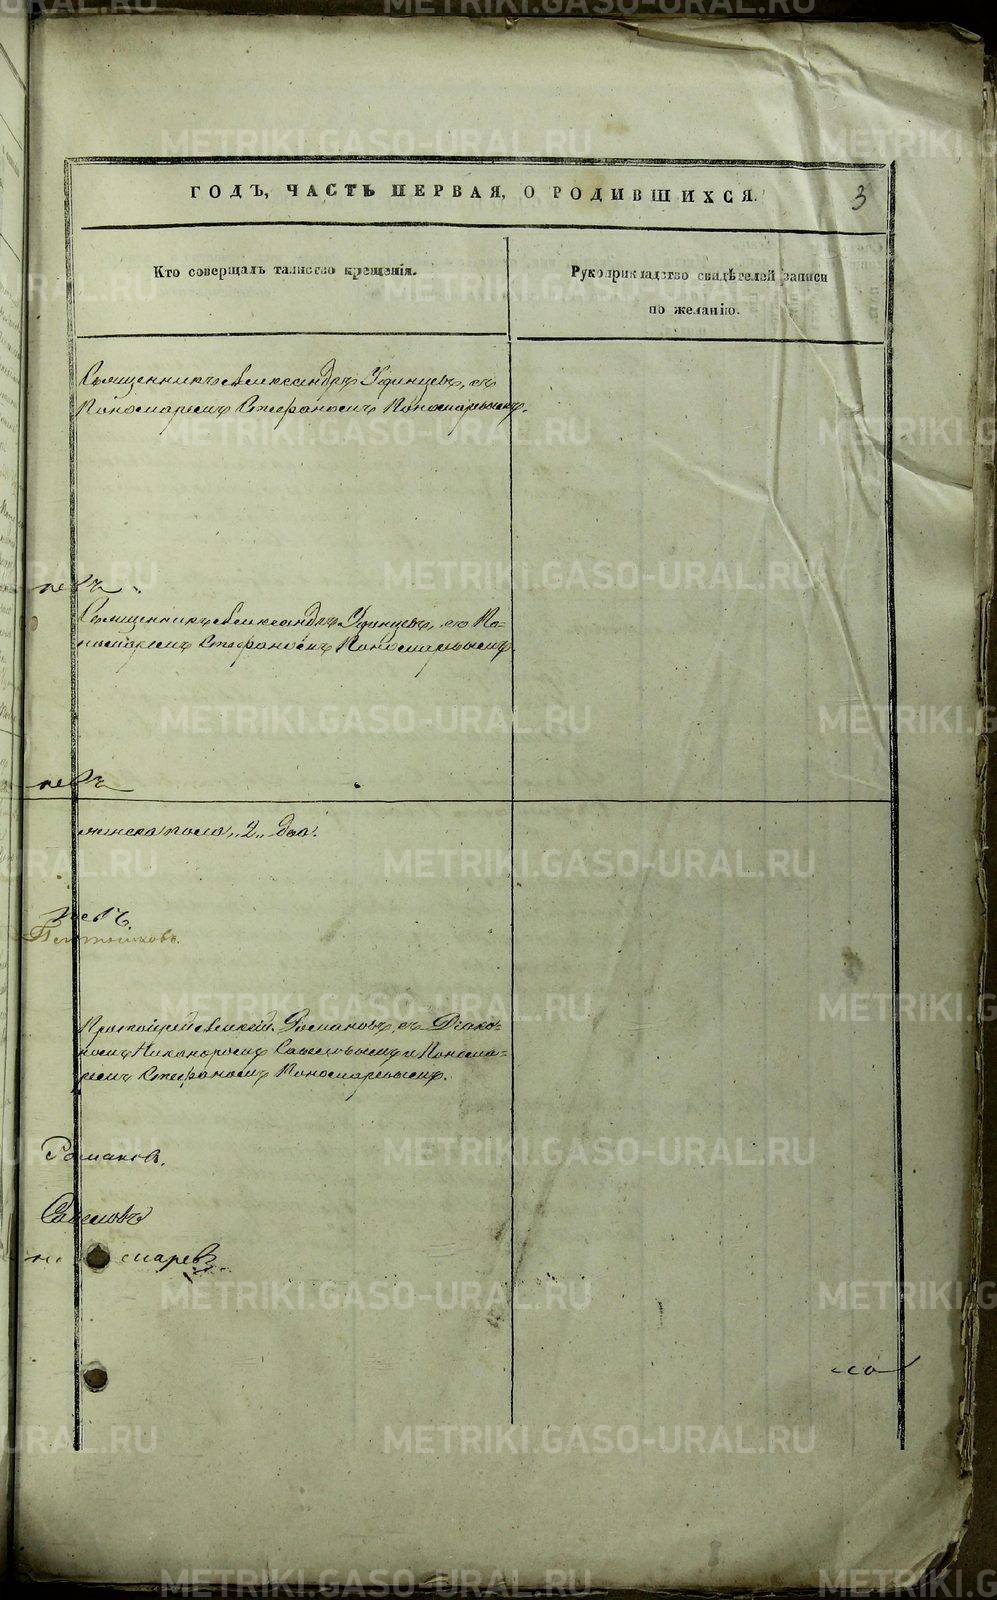 ГОДЪ, ЧАСТЬ ПЕРВАЯ, О РОДИВШИХСЯ.
3
Кто совершалъ таинство крещенія.
Рукоприкладство свидѣтелей записи
по желанію.
Священникъ Александръ Уфинцевъ, съ
Пономаремъ Стефаномъ Пономаревымъ.
Священникъ Александръ Уфинцевъ, съ По-
номаремъ Стефаномъ Пономаревымъ.
женска пола „2„ два.
Протоіерей Алексій Романовъ, съ Діако-
номъ Никаноромъ Савеловымъ и Понома-
ремъ Стефаномъ Пономаревымъ.
Романов.
Савеловъ
марев
METRIKI.GASO-URAL.RU